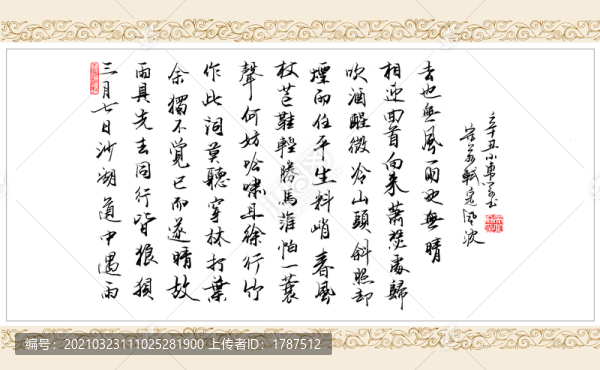 三月七日沙湖道中遇雨
雨具先去同行皆狼狽
余獨不覺已而遂晴故
作此詞莫聽穿林打葉
聲何妨吟嘯且徐行竹
杖芒鞋輕勝馬誰怕一蓑
煙雨任平生料峭春風
吹酒醒微冷山頭斜照却
相迎回首向來蕭瑟處歸
去也無風雨也無晴
軾定風波
辛丑
编号：20210323111025281900 上传者ID：1787512